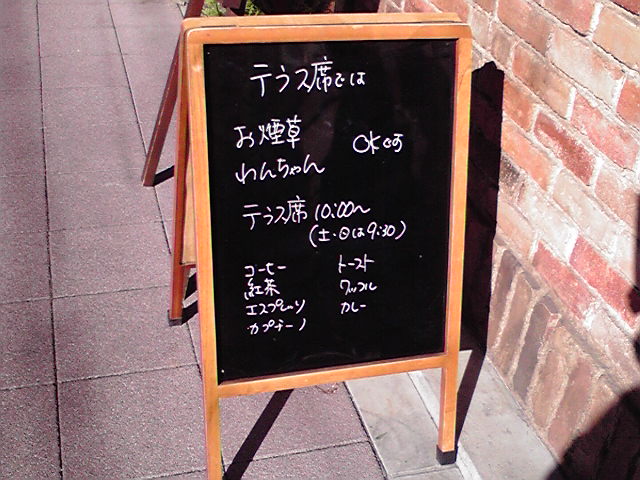 テラス席では
お煙草
わんちゃん
OKです
テラス席 10:00〜
(土・日は9:30)
コーヒー
紅茶
エスプレッソ
カプチーノ
トースト
ワッフル
カレー